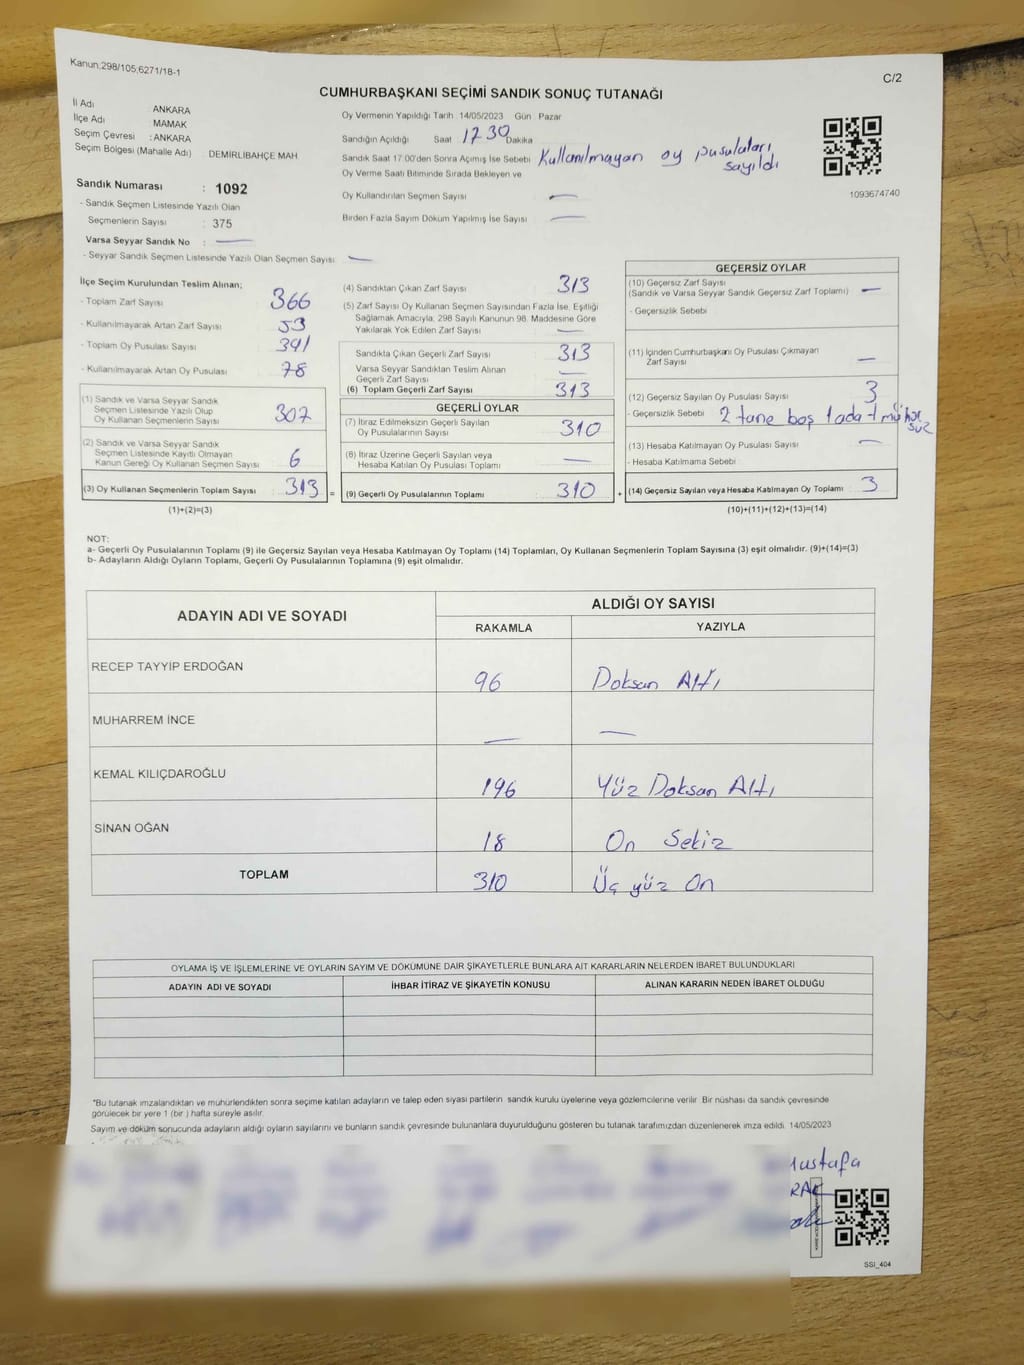 Kanun;298/105;6271/18-1
C/2
CUMHURBAŞKANI SEÇİMİ SANDIK SONUÇ TUTANAĞI
İl Adı : ANKARA
İlçe Adı : MAMAK
Seçim Çevresi : ANKARA
Seçim Bölgesi (Mahalle Adı) : DEMİRLİBAHÇE MAH
Sandık Numarası : 1092
- Sandık Seçmen Listesinde Yazılı Olan
Seçmenlerin Sayısı : 375
Varsa Seyyar Sandık No : —
- Seyyar Sandık Seçmen Listesinde Yazılı Olan Seçmen Sayısı —
Oy Vermenin Yapıldığı Tarih : 14/05/2023 Gün Pazar
Sandığın Açıldığı Saat 17 30 Dakika
Sandık Saat 17:00'den Sonra Açımış İse Sebebi Kullanılmayan oy pusulaları sayıldı
Oy Verme Saati Bitiminde Sırada Bekleyen ve
Oy Kullandırılan Seçmen Sayısı —
Birden Fazla Sayım Döküm Yapılmış İse Sayısı —
1093674740
İlçe Seçim Kurulundan Teslim Alınan;
- Toplam Zarf Sayısı 366
- Kullanılmayarak Artan Zarf Sayısı 53
- Toplam Oy Pusulası Sayısı 391
- Kullanılmayarak Artan Oy Pusulası 78
(1) Sandık ve Varsa Seyyar Sandık
Seçmen Listesinde Yazılı Olup
Oy Kullanan Seçmenlerin Sayısı 307
(2) Sandık ve Varsa Seyyar Sandık
Seçmen Listesinde Kayıtlı Olmayan
Kanun Gereği Oy Kullanan Seçmen Sayısı 6
(3) Oy Kullanan Seçmenlerin Toplam Sayısı 313 =
(1)+(2)=(3)
(4) Sandıktan Çıkan Zarf Sayısı 313
(5) Zarf Sayısı Oy Kullanan Seçmen Sayısından Fazla İse, Eşitliği
Sağlamak Amacıyla; 298 Sayılı Kanunun 98. Maddesine Göre
Yakılarak Yok Edilen Zarf Sayısı —
Sandıkta Çıkan Geçerli Zarf Sayısı 313
Varsa Seyyar Sandıktan Teslim Alınan
Geçerli Zarf Sayısı —
(6) Toplam Geçerli Zarf Sayısı 313
GEÇERLİ OYLAR
(7) İtiraz Edilmeksizin Geçerli Sayılan
Oy Pusulalarının Sayısı 310
(8) İtiraz Üzerine Geçerli Sayılan veya
Hesaba Katılan Oy Pusulası Toplamı —
(9) Geçerli Oy Pusulalarının Toplamı 310 +
GEÇERSİZ OYLAR
(10) Geçersiz Zarf Sayısı
(Sandık ve Varsa Seyyar Sandık Geçersiz Zarf Toplamı) —
- Geçersizlik Sebebi
(11) İçinden Cumhurbaşkanı Oy Pusulası Çıkmayan
Zarf Sayısı —
(12) Geçersiz Sayılan Oy Pusulası Sayısı 3
- Geçersizlik Sebebi 2 tane boş 1 adet mühürsüz
(13) Hesaba Katılmayan Oy Pusulası Sayısı —
- Hesaba Katılmama Sebebi
(14) Geçersiz Sayılan veya Hesaba Katılmayan Oy Toplamı 3
(10)+(11)+(12)+(13)=(14)
NOT:
a- Geçerli Oy Pusulalarının Toplamı (9) ile Geçersiz Sayılan veya Hesaba Katılmayan Oy Toplamı (14) Toplamları, Oy Kullanan Seçmenlerin Toplam Sayısına (3) eşit olmalıdır. (9)+(14)=(3)
b- Adayların Aldığı Oyların Toplamı, Geçerli Oy Pusulalarının Toplamına (9) eşit olmalıdır.
ADAYIN ADI VE SOYADI
ALDIĞI OY SAYISI
RAKAMLA YAZIYLA
RECEP TAYYİP ERDOĞAN 96 Doksan Altı
MUHARREM İNCE — —
KEMAL KILIÇDAROĞLU 196 Yüz Doksan Altı
SİNAN OĞAN 18 On Sekiz
TOPLAM 310 Üç yüz On
OYLAMA İŞ VE İŞLEMLERİNE VE OYLARIN SAYIM VE DÖKÜMÜNE DAİR ŞİKAYETLERLE BUNLARA AİT KARARLARIN NELERDEN İBARET BULUNDUKLARI
ADAYIN ADI VE SOYADI İHBAR İTİRAZ VE ŞİKAYETİN KONUSU ALINAN KARARIN NEDEN İBARET OLDUĞU
"Bu tutanak imzalandıktan ve mühürlendikten sonra seçime katılan adayların ve talep eden siyasi partilerin sandık kurulu üyelerine veya gözlemcilerine verilir. Bir nüshası da sandık çevresinde
görülecek bir yere 1 (bir ) hafta süreyle asılır.
Sayım ve döküm sonucunda adayların aldığı oyların sayılarını ve bunların sandık çevresinde bulunanlara duyurulduğunu gösteren bu tutanak tarafımızdan düzenlenerek imza edildi. 14/05/2023
ustafa
RAK
SSI_404